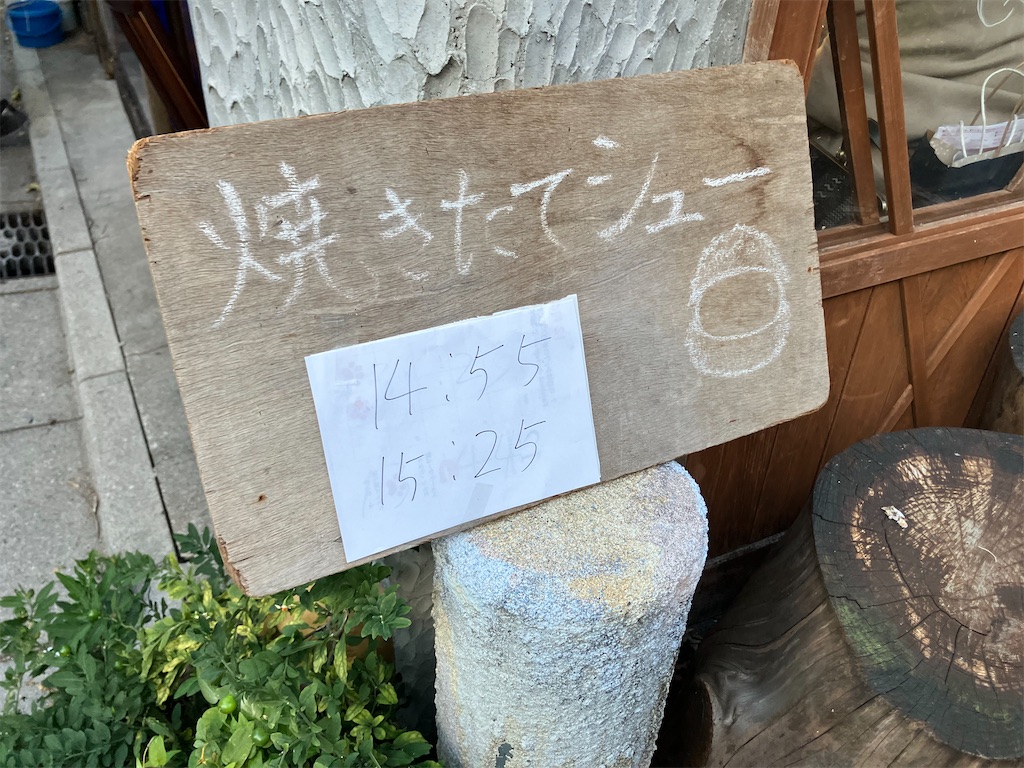 焼きたてシュー
14:55
15:25